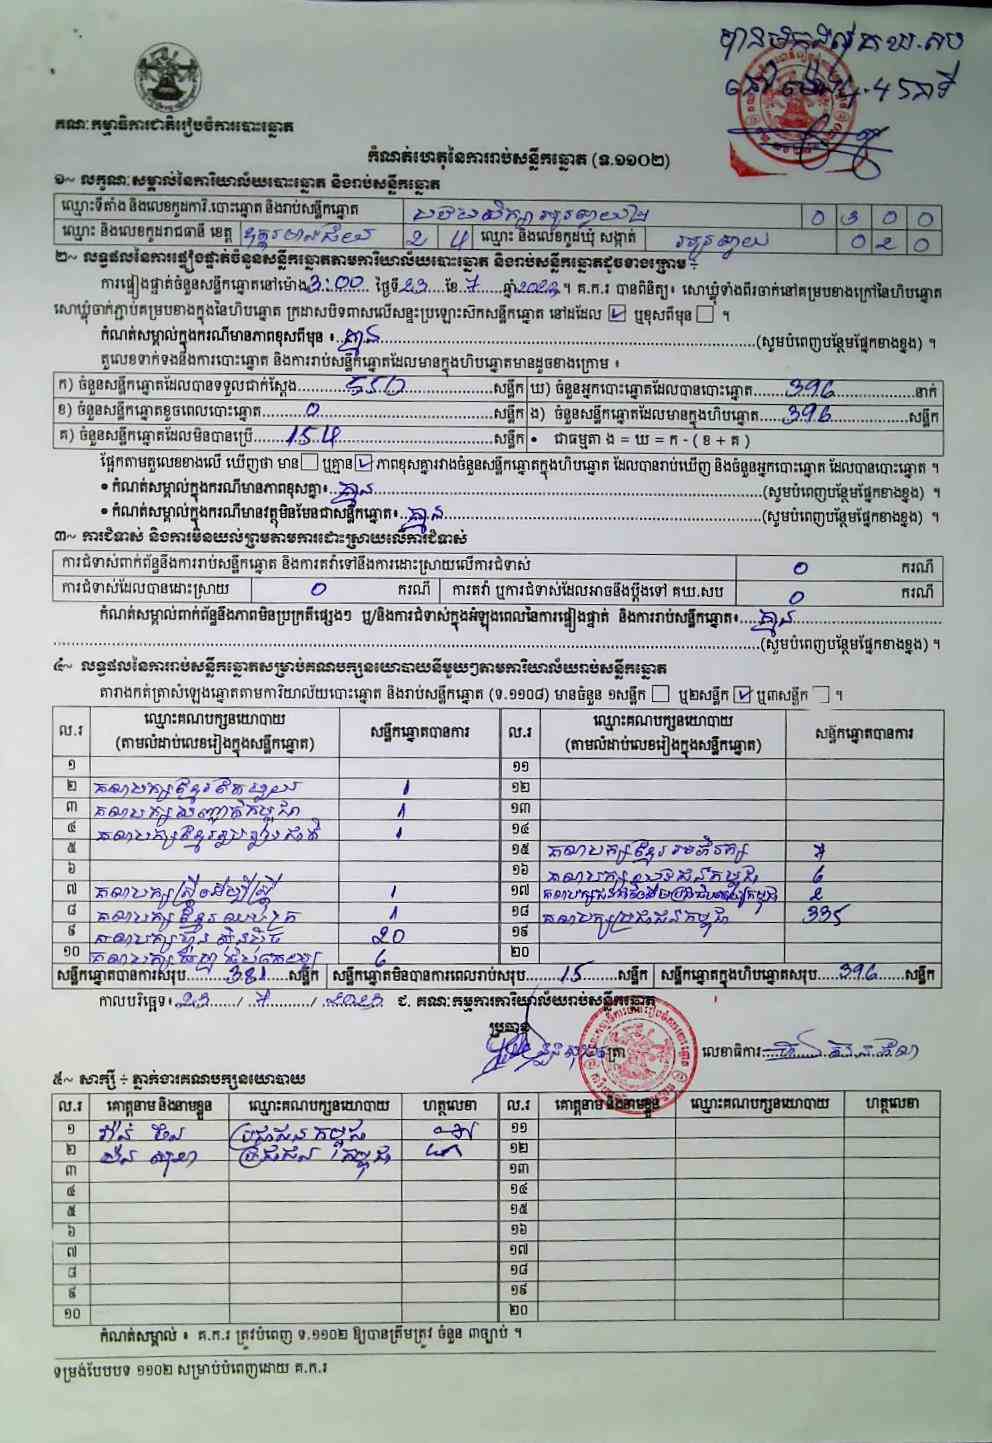 បានមកដល់ គ.ឃ.សប
គណៈកម្មាធិការជាតិរៀបចំការបោះឆ្នោត
កំណត់ហេតុនៃការរាប់សន្លឹកឆ្នោត (ទ.១១០២)
១~ លក្ខណៈសម្គាល់នៃការិយាល័យបោះឆ្នោត និងរាប់សន្លឹកឆ្នោត
ឈ្មោះទីតាំង និងលេខកូដការិ.បោះឆ្នោត និងរាប់សន្លឹកឆ្នោត
ឈ្មោះ និងលេខកូដរាជធានី ខេត្ត ឧត្តរមានជ័យ 2 4 ឈ្មោះ និងលេខកូដឃុំ សង្កាត់ 0 2 0
២~ លទ្ធផលនៃការផ្ទៀងផ្ទាត់ចំនួនសន្លឹកឆ្នោតតាមការិយាល័យបោះឆ្នោត និងរាប់សន្លឹកឆ្នោតដូចខាងក្រោម ÷
ការផ្ទៀងផ្ទាត់ចំនួនសន្លឹកឆ្នោតនៅម៉ោង 3:00 ថ្ងៃទី 23 ខែ 7 ឆ្នាំ 2023 ។ គ.ក.រ បានពិនិត្យ៖ សោឃ្លុំទាំងពីរចាក់នៅគម្របខាងក្រៅនៃហិបឆ្នោត
សោឃ្លុំចាក់ភ្ជាប់គម្របខាងក្នុងនៃហិបឆ្នោត ក្រដាសបិទពាសលើសន្ទះប្រឡោះស៊កសន្លឹកឆ្នោត នៅដដែល ☑ ឬខុសពីមុន ☐ ។
កំណត់សម្គាល់ក្នុងករណីមានភាពខុសពីមុន ៖ គ្មាន (សូមបំពេញបន្ថែមផ្នែកខាងខ្នង) ។
តួលេខទាក់ទងនឹងការបោះឆ្នោត និងការរាប់សន្លឹកឆ្នោតដែលមានក្នុងហិបឆ្នោតមានដូចខាងក្រោម ៖
ក) ចំនួនសន្លឹកឆ្នោតដែលបានទទួលជាក់ស្តែង 550 សន្លឹក ឃ) ចំនួនអ្នកបោះឆ្នោតដែលបានបោះឆ្នោត 396 នាក់
ខ) ចំនួនសន្លឹកឆ្នោតខូចពេលបោះឆ្នោត 0 សន្លឹក ង) ចំនួនសន្លឹកឆ្នោតដែលមានក្នុងហិបឆ្នោត 396 សន្លឹក
គ) ចំនួនសន្លឹកឆ្នោតដែលមិនបានប្រើ 154 សន្លឹក • ជាធម្មតា ង = ឃ = ក - ( ខ + គ )
ផ្អែកតាមតួលេខខាងលើ ឃើញថា មាន ☐ ឬគ្មាន ☑ ភាពខុសគ្នារវាងចំនួនសន្លឹកឆ្នោតក្នុងហិបឆ្នោត ដែលបានរាប់ឃើញ និងចំនួនអ្នកបោះឆ្នោត ដែលបានបោះឆ្នោត ។
• កំណត់សម្គាល់ក្នុងករណីមានភាពខុសគ្នា៖ គ្មាន (សូមបំពេញបន្ថែមផ្នែកខាងខ្នង) ។
• កំណត់សម្គាល់ក្នុងករណីមានវត្ថុមិនមែនជាសន្លឹកឆ្នោត៖ គ្មាន (សូមបំពេញបន្ថែមផ្នែកខាងខ្នង) ។
៣~ ការជំទាស់ និងការមិនយល់ព្រមតាមការដោះស្រាយលើការជំទាស់
ការជំទាស់ពាក់ព័ន្ធនឹងការរាប់សន្លឹកឆ្នោត និងការតវ៉ាទៅនឹងការដោះស្រាយលើការជំទាស់ 0 ករណី
ការជំទាស់ដែលបានដោះស្រាយ 0 ករណី ការតវ៉ា ឬការជំទាស់ដែលអាចនឹងប្តឹងទៅ គឃ.សប 0 ករណី
កំណត់សម្គាល់ពាក់ព័ន្ធនឹងភាពមិនប្រក្រតីផ្សេងៗ ឬ/និងការជំទាស់ក្នុងអំឡុងពេលនៃការផ្ទៀងផ្ទាត់ និងការរាប់សន្លឹកឆ្នោត៖ គ្មាន
(សូមបំពេញបន្ថែមផ្នែកខាងខ្នង) ។
៤~ លទ្ធផលនៃការរាប់សន្លឹកឆ្នោតសម្រាប់គណបក្សនយោបាយនីមួយៗតាមការិយាល័យរាប់សន្លឹកឆ្នោត
តារាងកត់ត្រាសំឡេងឆ្នោតតាមការិយាល័យបោះឆ្នោត និងរាប់សន្លឹកឆ្នោត (ទ.១១០៨) មានចំនួន ១សន្លឹក ☐ ឬ២សន្លឹក ☑ ឬ៣សន្លឹក ☐ ។
ល.រ ឈ្មោះគណបក្សនយោបាយ សន្លឹកឆ្នោតបានការ ល.រ ឈ្មោះគណបក្សនយោបាយ សន្លឹកឆ្នោតបានការ
(តាមលំដាប់លេខរៀងក្នុងសន្លឹកឆ្នោត) (តាមលំដាប់លេខរៀងក្នុងសន្លឹកឆ្នោត)
១ ១១
២ គណបក្សខ្មែរតែមួយ 1 ១២
៣ គណបក្សសញ្ជាតិកម្ពុជា 1 ១៣
៤ គណបក្សខ្មែររួបរួមជាតិ 1 ១៤
៥ ១៥ គណបក្សខ្មែរអភិរក្ស 7
៦ ១៦ គណបក្សយុវជនកម្ពុជា 6
៧ គណបក្សស្ត្រីដើម្បីស្ត្រី 1 ១៧ 2
៨ គណបក្សខ្មែរ 1 ១៨ គណបក្សប្រជាជនកម្ពុជា 335
៩ គណបក្សហ្វ៊ុនស៊ិនប៉ិច 20 ១៩
១០ 6 ២០
សន្លឹកឆ្នោតបានការសរុប 381 សន្លឹក សន្លឹកឆ្នោតមិនបានការពេលរាប់សរុប 15 សន្លឹក សន្លឹកឆ្នោតក្នុងហិបឆ្នោតសរុប 396 សន្លឹក
កាលបរិច្ឆេទ៖ 23 / 7 / 2023 ជ. គណៈកម្មការការិយាល័យរាប់សន្លឹកឆ្នោត
ប្រធាន
ត្រា លេខាធិការ
៥~ សាក្សី ÷ ភ្នាក់ងារគណបក្សនយោបាយ
ល.រ គោត្តនាម និងនាមខ្លួន ឈ្មោះគណបក្សនយោបាយ ហត្ថលេខា ល.រ គោត្តនាម និងនាមខ្លួន ឈ្មោះគណបក្សនយោបាយ ហត្ថលេខា
១ ប្រជាជនកម្ពុជា ១១
២ ប្រជាជនកម្ពុជា ១២
៣ ១៣
៤ ១៤
៥ ១៥
៦ ១៦
៧ ១៧
៨ ១៨
៩ ១៩
១០ ២០
កំណត់សម្គាល់ ៖ គ.ក.រ ត្រូវបំពេញ ទ.១១០២ ឱ្យបានត្រឹមត្រូវ ចំនួន ៣ច្បាប់ ។
ទម្រង់បែបបទ ១១០២ សម្រាប់បំពេញដោយ គ.ក.រ